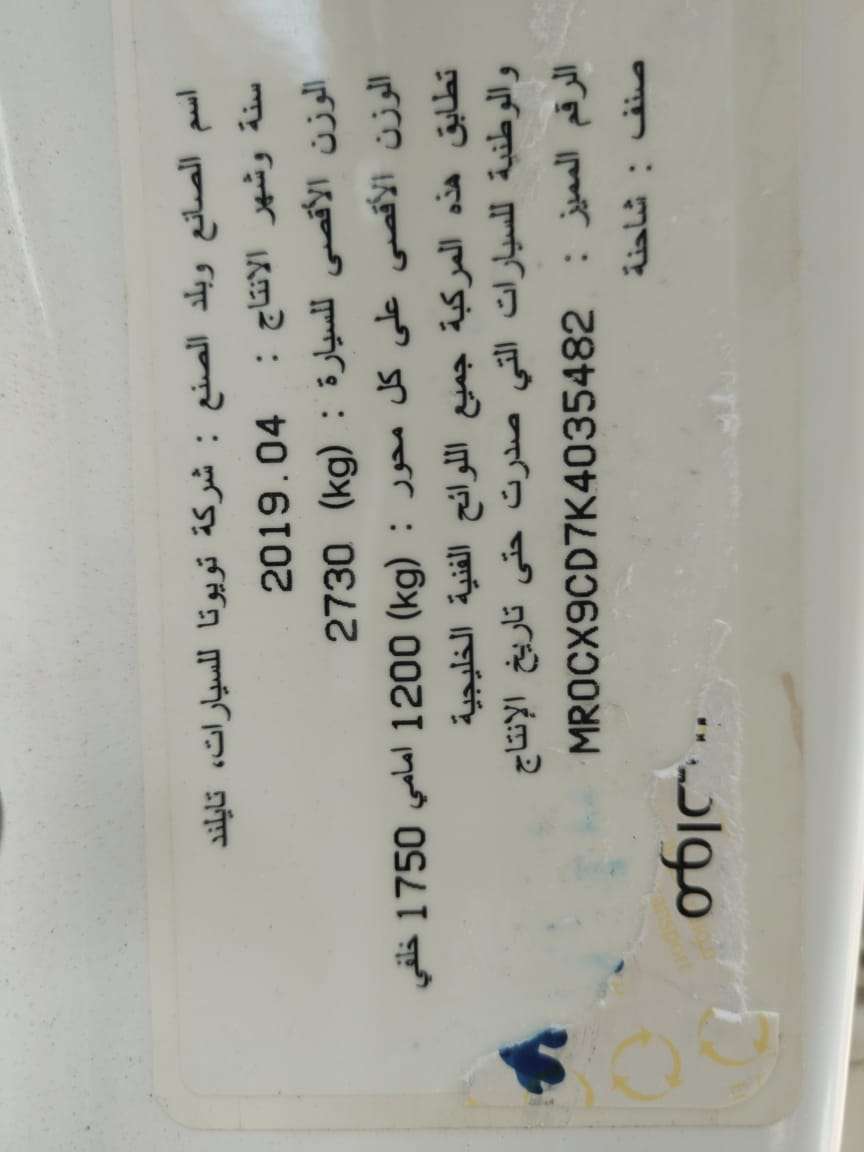 اسم الصانع وبلد الصنع : شركة تويوتا للسيارات، تايلند
سنة وشهر الانتاج : 2019.04
الوزن الأقصى للسيارة : (kg) 2730
الوزن الأقصى على كل محور : (kg) 1200 امامي 1750 خلفي
تطابق هذه المركبة جميع اللوائح الفنية الخليجية
والوطنية للسيارات التي صدرت حتى تاريخ الإنتاج
الرقم المميز : MR0CX9CD7K4035482
صنف : شاحنة